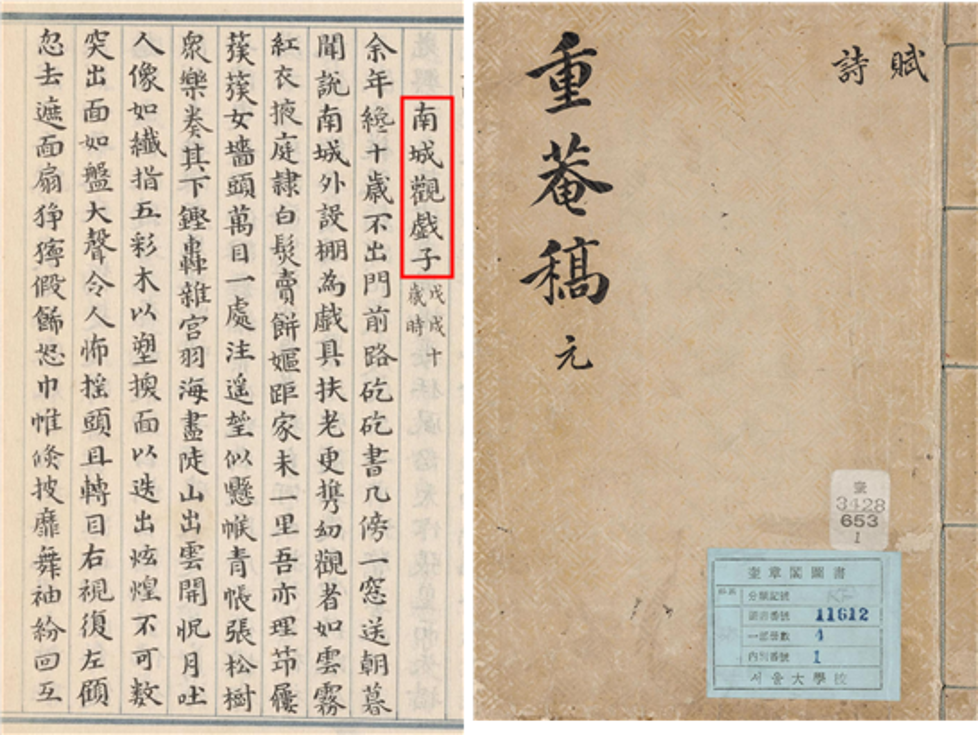 南城觀戲子
戊戌十
歲時
余年纔十歲不出門前路矻矻書几傍一窓送朝暮
聞說南城外設棚為戲具扶老更携幼觀者如雲霧
紅衣掖庭隷白髮賣餠嫗距家未一里吾亦理笻屨
蔟蔟女墻頭萬目一處注遙望似懸帿青帳張松樹
衆樂奏其下鏗轟雜宮羽海盡陡山出雲開怳月吐
人像如纖指五彩木以塑換面以迭出炫煌不可數
突出面如盤大聲令人怖搖頭且轉目右視復左顧
忽去遮面扇猙獰假飾怒巾帷倏披靡舞袖紛回互
賦
詩
重菴稿 元
奎
3428
653
1
奎章閣圖書
分類記號
圖書番號 11612
一部冊數 4
內別番號 1
서울大學校